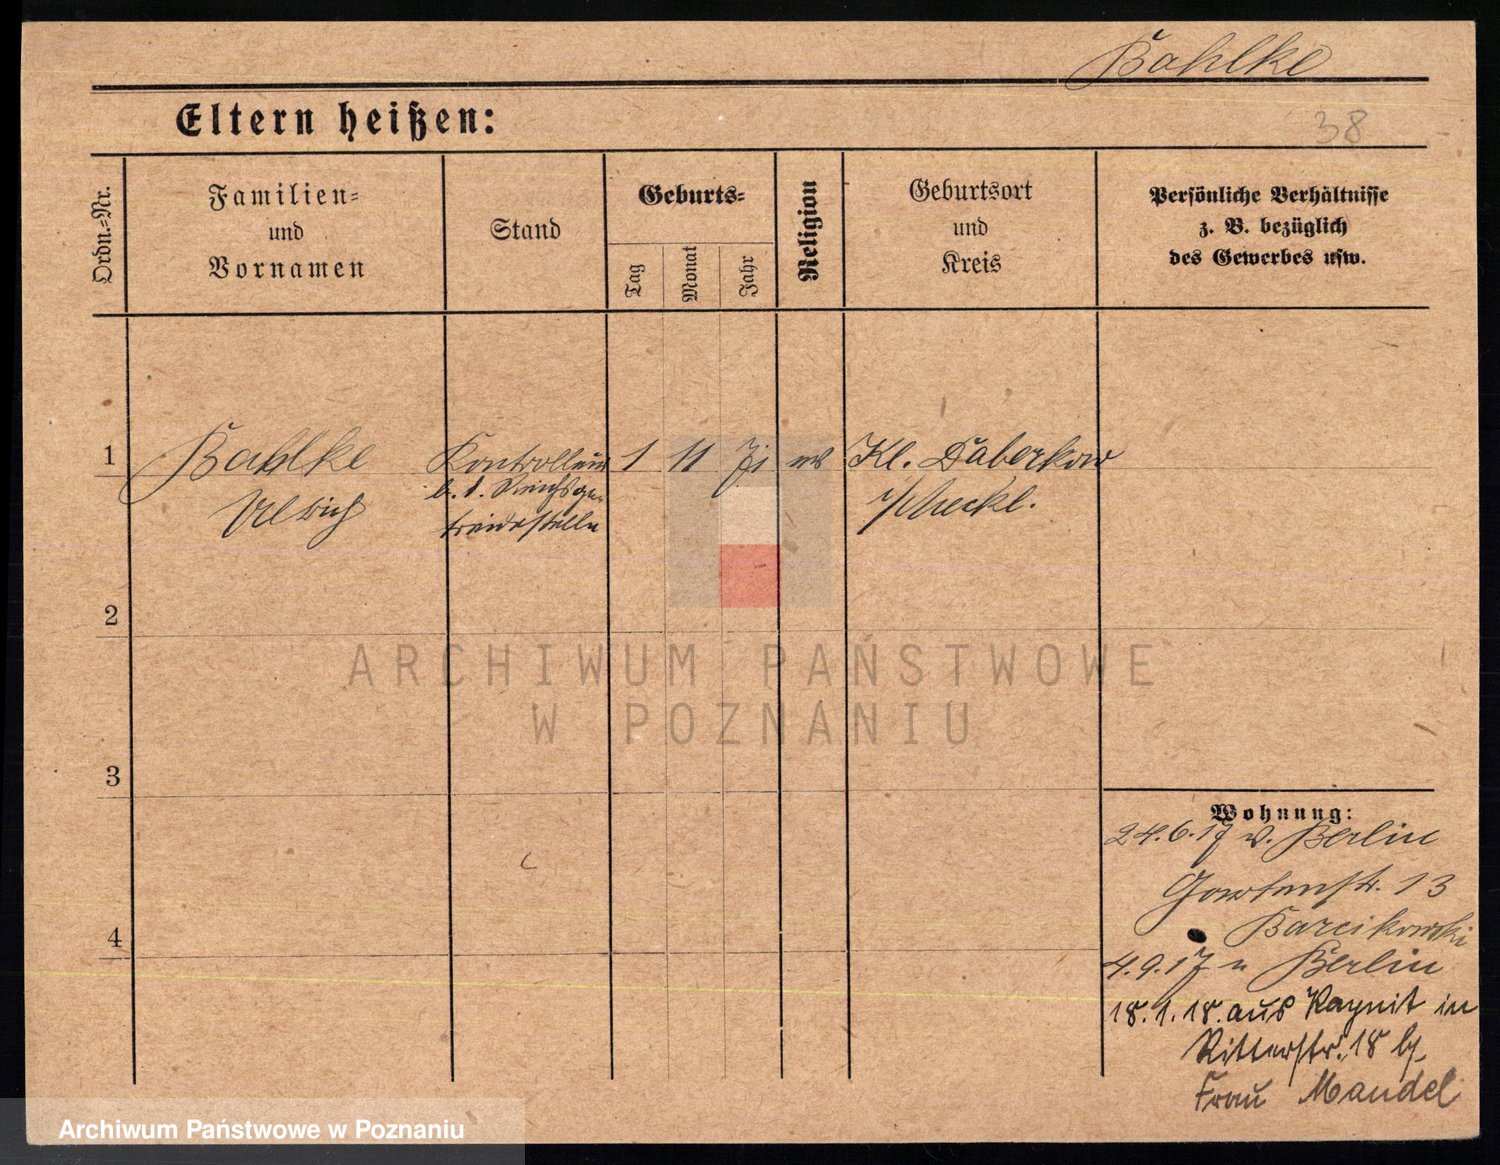 Bahlke
38
Eltern heißen:
Ordn.-Nr.
Familien-
und
Vornamen
Stand
Geburts-
Tag
Monat
Jahr
Religion
Geburtsort
und
Kreis
Persönliche Verhältnisse
z. B. bezüglich
des Gewerbes usw.
1
Bahlke
Ulrich
Kontrolleur
b. d. Reichsge-
treidestelle
1
11
71
Kl. Daberkow
i/Meckl.
2
3
4
Wohnung:
24.6.17 v. Berlin
Gartenstr. 13
Barcikowski
4.9.17 n Berlin
18.1.18. aus in
Ritterstr. 18 bj.
Frau Mandel
ARCHIWUM PAŃSTWOWE
W POZNANIU
Archiwum Państwowe w Poznaniu